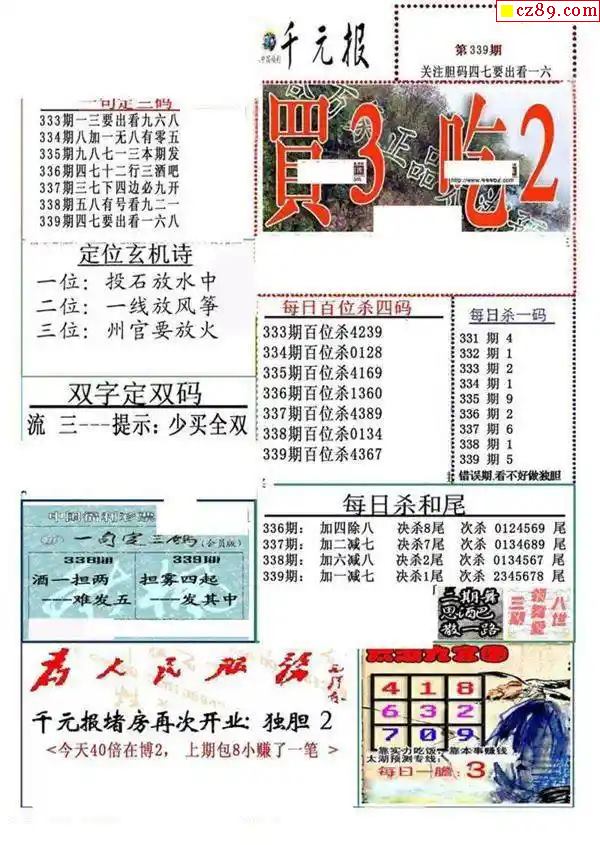 cz89.com
千元报
第339期
关注胆码四七要出看一六
一句定三码
333期一三要出看九六八
334期八加一无八有零五
335期九八七一三本期发
336期四七十二行三酒吧
337期三七下四边必九开
338期五八有号看九二一
339期四七要出看一六八
買3 吃2
定位玄机诗
一位: 投石放水中
二位: 一线放风筝
三位: 州官要放火
双字定双码
流 三---提示: 少买全双
每日百位杀四码
333期百位杀4239
334期百位杀0128
335期百位杀4169
336期百位杀1360
337期百位杀4389
338期百位杀0134
339期百位杀4367
每日杀一码
331 期 4
332 期 1
333 期 2
334 期 1
335 期 9
336 期 2
337 期 6
338 期 1
339 期 5
错误期,看不好做独胆
每日杀和尾
336期: 加四除八 决杀8尾 次杀 0124569 尾
337期: 加二减七 决杀7尾 次杀 0134689 尾
338期: 加六减八 决杀2尾 次杀 0134567 尾
339期: 加一减七 决杀1尾 次杀 2345678 尾
中国福利彩票
一句定三码(会员版)
338期 339期
酒一担两 担雾四起
---难发五 ---发其中
为人民服务
千元报堵房再次开业: 独胆 2
<今天40倍在博2, 上期包8小赚了一笔 >
4 1 8
6 3 2
7 0 9
靠实力吃饭,靠本事赚钱
太湖预测专线:
每日一膽: 3